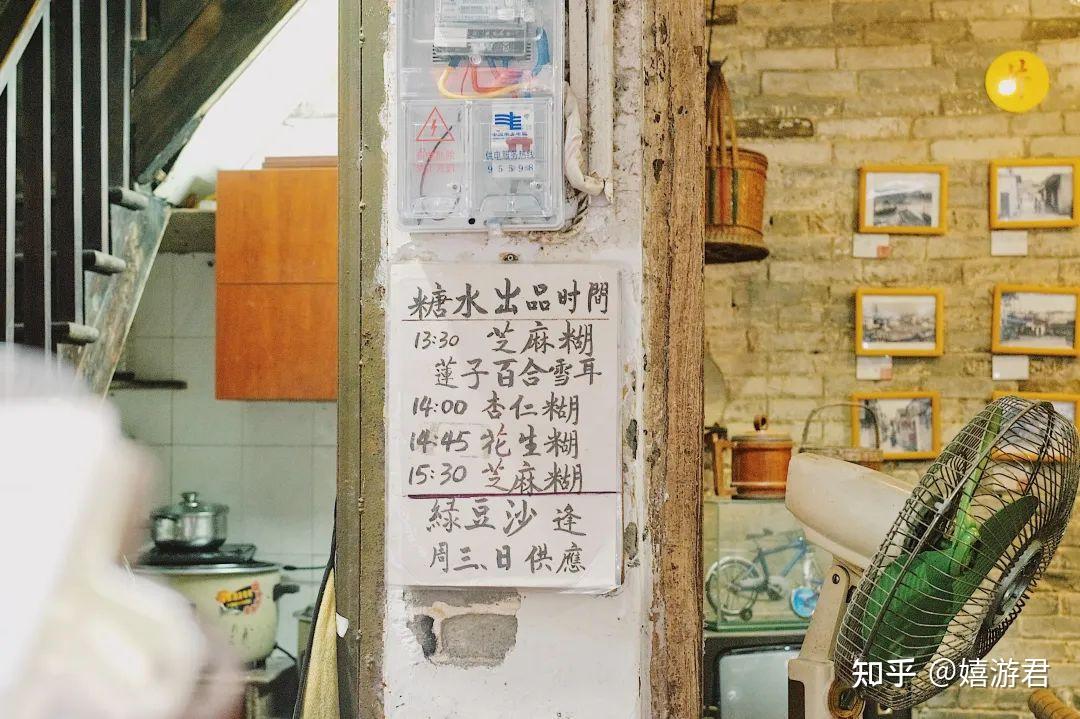 供电服务热线
95598
糖水出品时間
13:30 芝麻糊
蓮子百合雪耳
14:00 杏仁糊
14:45 花生糊
15:30 芝麻糊
綠豆沙 逢
周三、日供應
知乎 @嬉游君